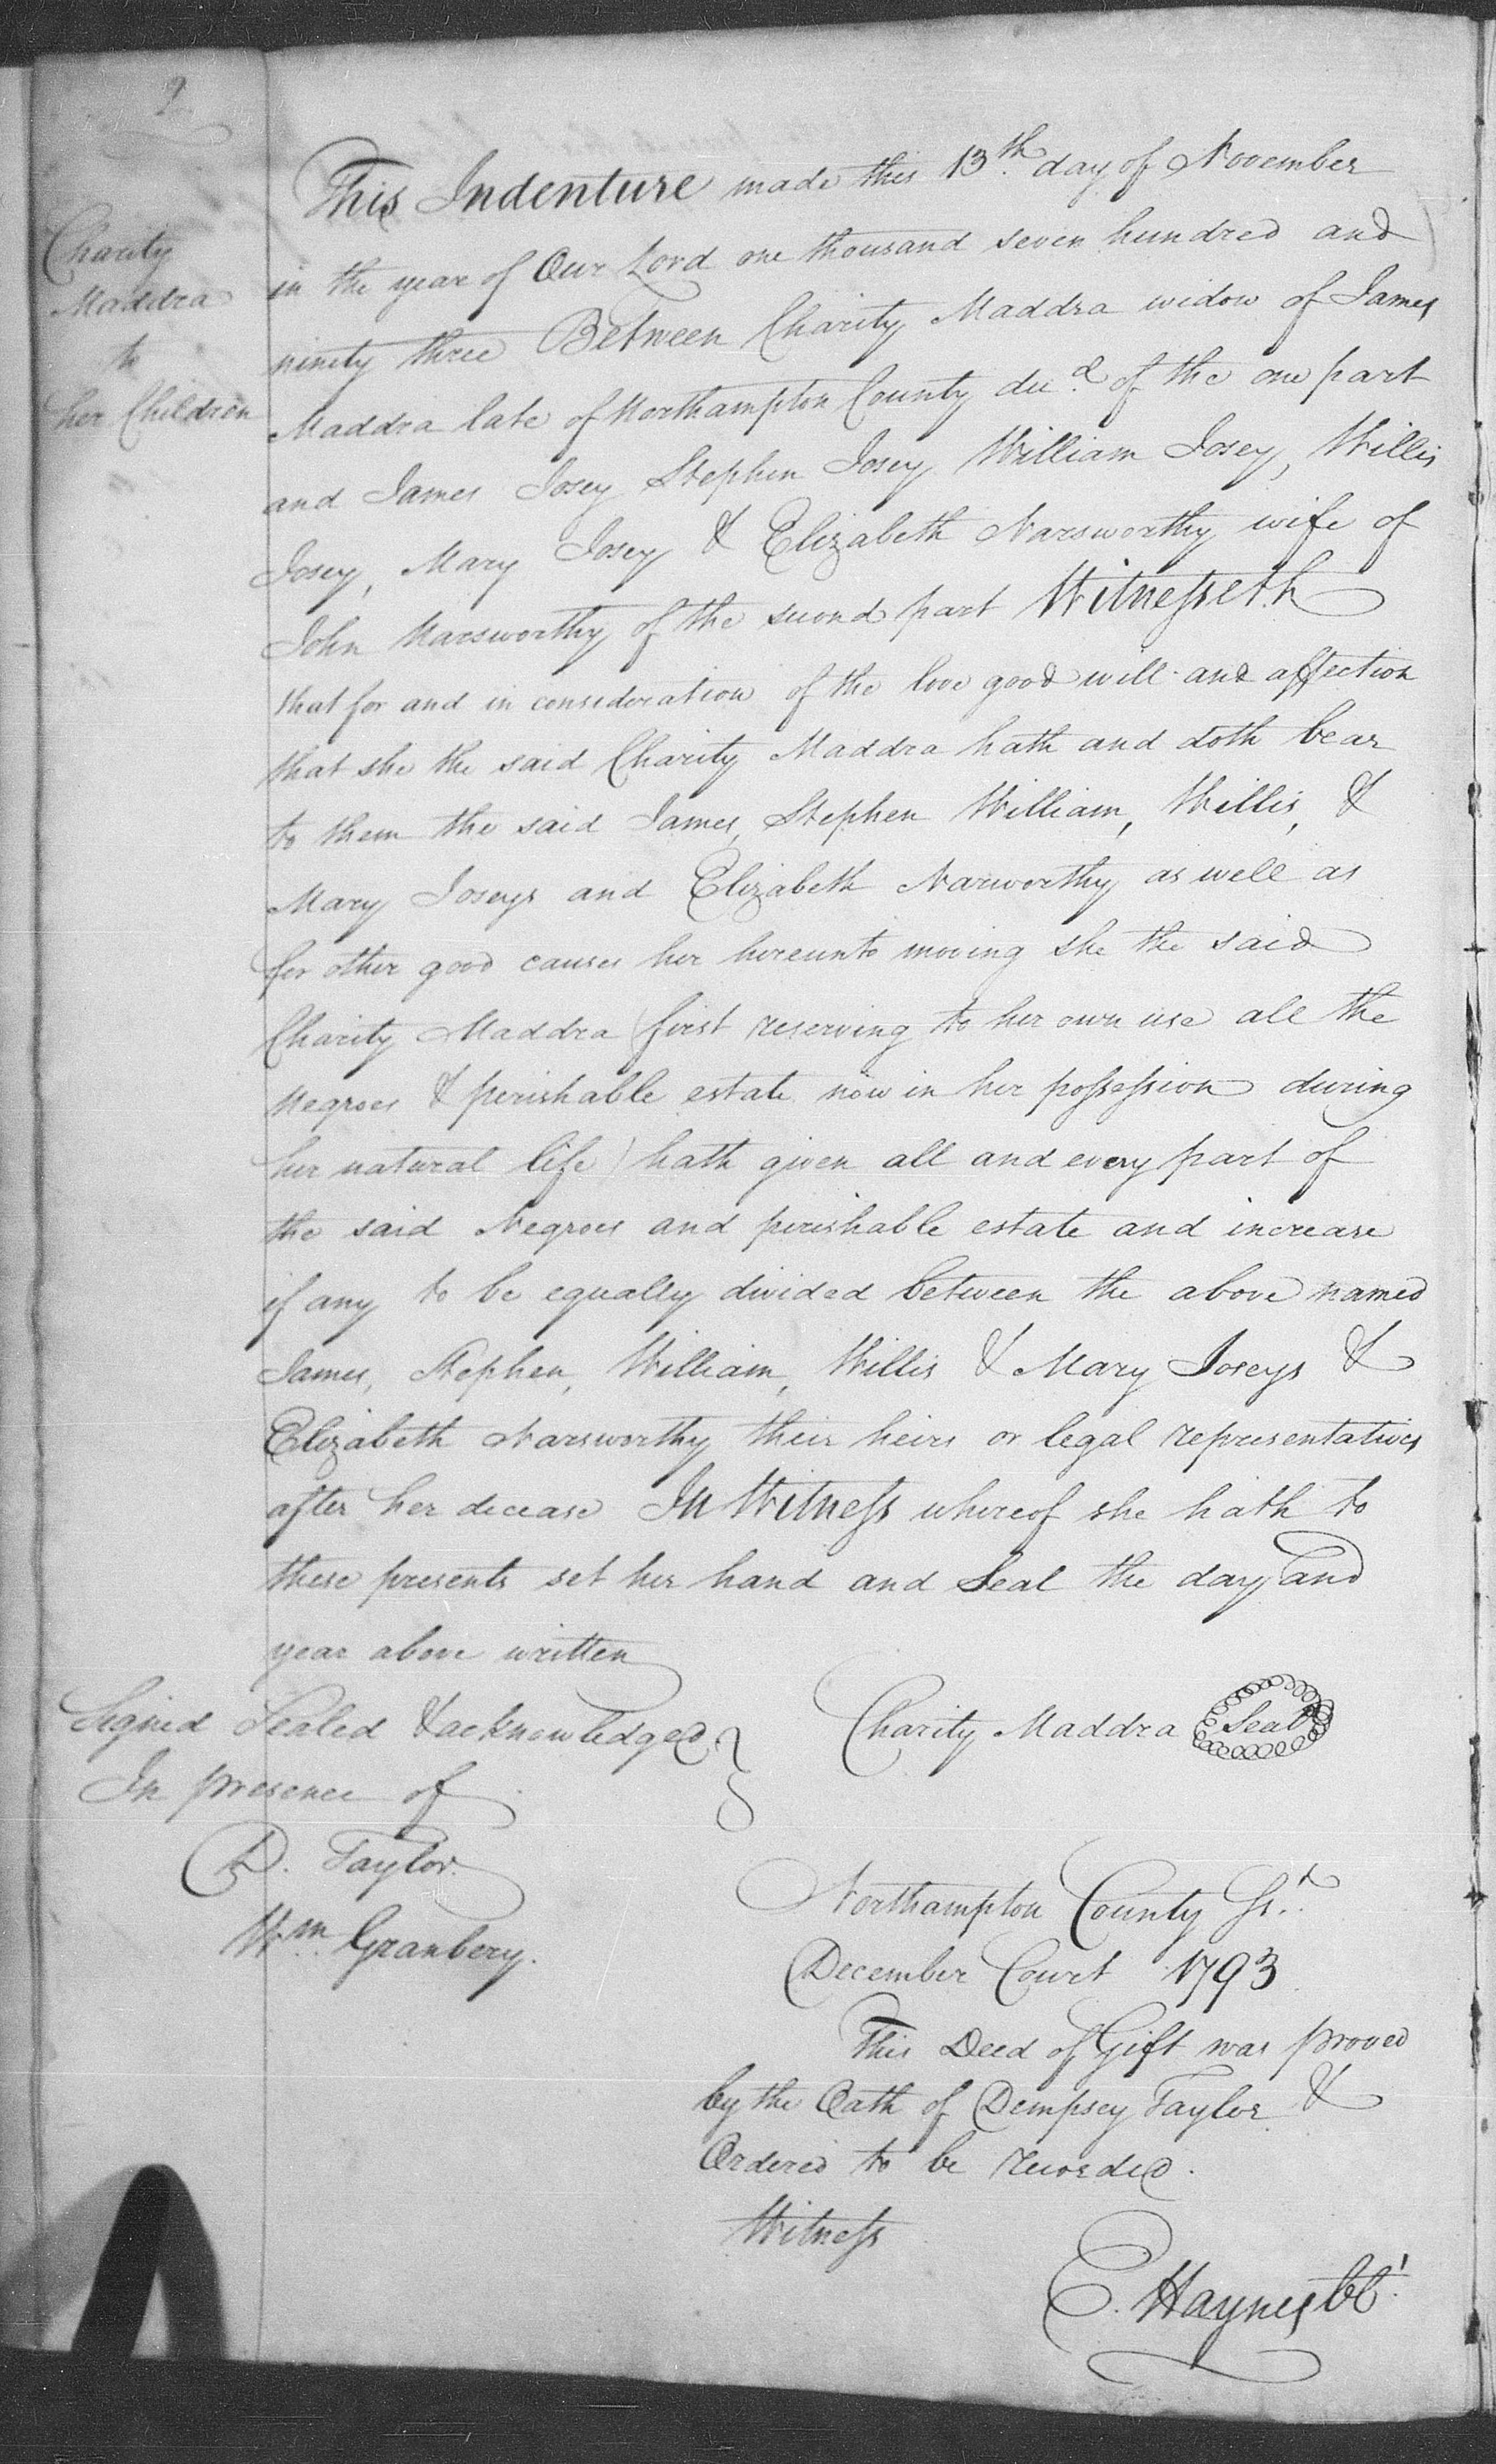 2
Charity
Maddra
to
her Children
This Indenture made this 13th. day of November
in the year of Our Lord one thousand seven hundred and
ninety three Between Charity Maddra widow of James
Maddra late of Northampton County decd. of the one part
and James Josey Stephen Josey William Josey, Willis
Josey, Mary Josey & Elizabeth Narsworthy wife of
John Narsworthy of the second part Witnesseth
that for and in consideration of the love good will and affection
that she the said Charity Maddra hath and doth bear
to them the said James, Stephen William, Willis, &
Mary Joseys and Elizabeth Narworthy as well as
for other good causes her hereunto moving she the said
Charity Maddra (first reserving to her own use all the
Negroes & perishable estate now in her possession during
her natural life) hath given all and every part of
the said Negroes and perishable estate and increase
if any to be equally divided between the above named
James, Stephen, William, Willis & Mary Joseys &
Elizabeth Narsworthy their heirs or legal representatives
after her decease In Witness whereof she hath to
these presents set her hand and Seal the day and
year above written
Signed Sealed & acknowledged
In presence of
D. Taylor
Wm. Granbery.
Charity Maddra Seal
Northampton County Sst.
December Court 1793
This Deed of Gift was proved
by the Oath of Dempsey Taylor &
Ordered to be recorded.
Witness
E. Haynes CC